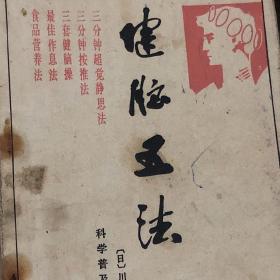 健脑五法
三分钟超觉静思法
三分钟按推法
三套健脑操
最佳作息法
食品营养法
〔日〕川
科学普及